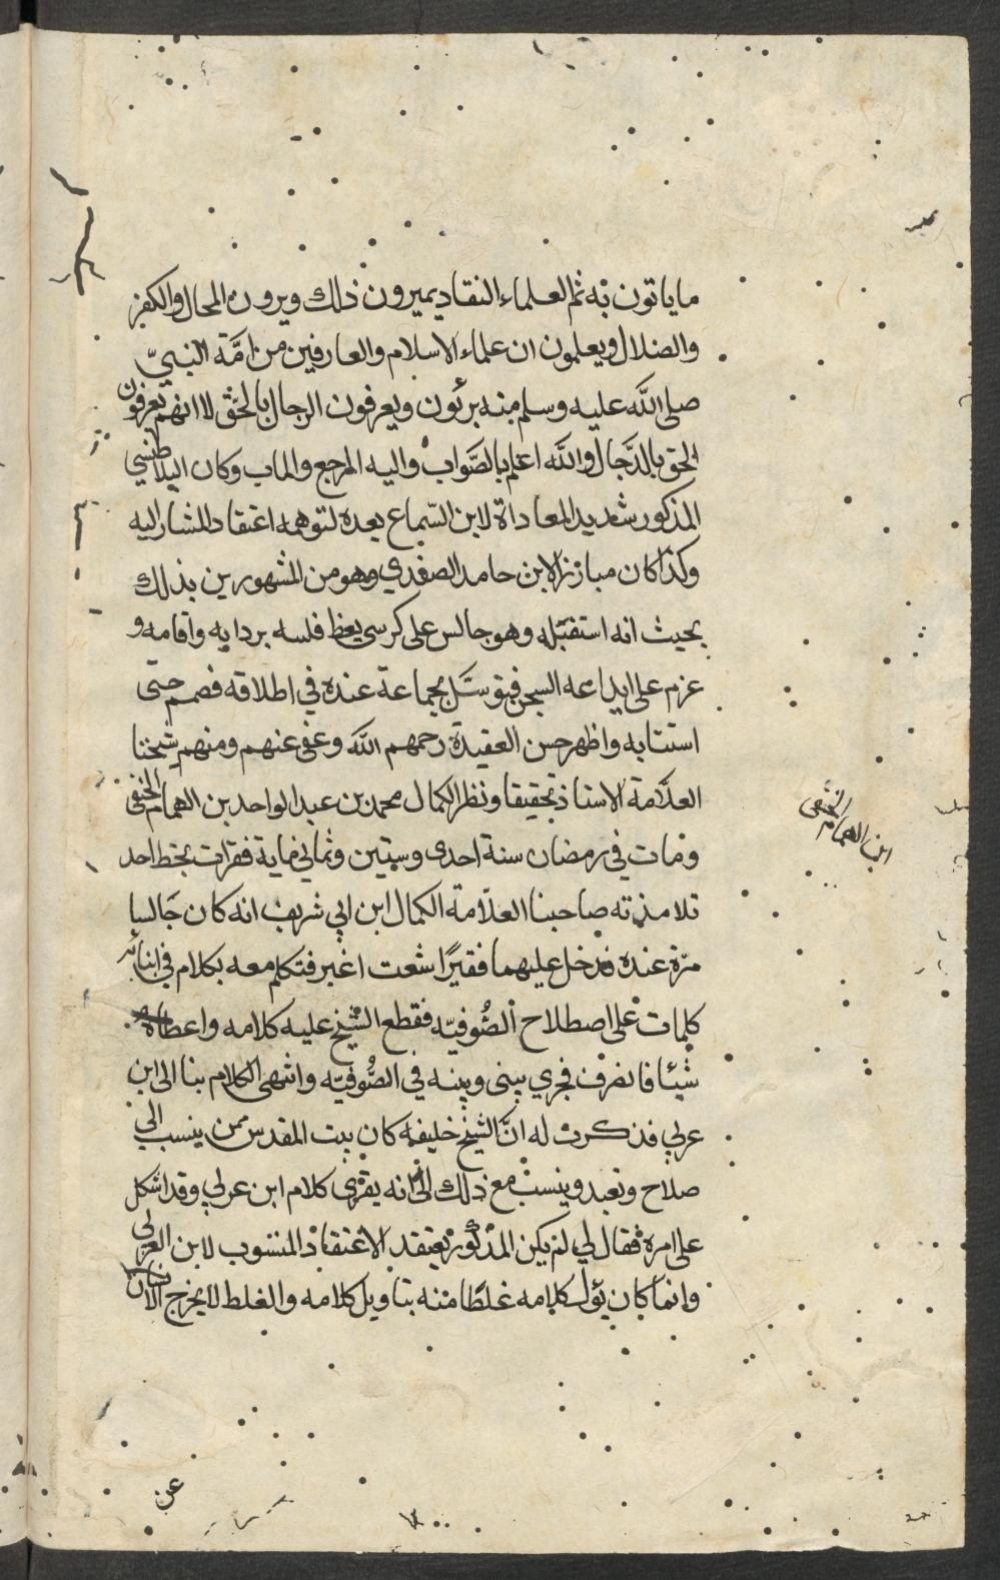 ما ياتون به ثم العلماء النقاد يميرون ذلك ويرون المحال والكفر
والضلال ويعلمون ان علماء الاسلام والعارفين من امّة النبيّ
صلى اللّه عليه وسلم منه برئون ويعرفون الرجال بالحقّ لا انهم يعرفون
الحق بالدّجال واللّه اعلم بالصّواب واليه المرجع والماب وكان البلاطنسي
المذكور شديد المعاداة لابن السّماع بعده لتوهمه اعتقاد المشار اليه
وكذا كان مبارزا لابن حامد الصفدي وهو من المشهورين بذلك
بحيث انه استقبله وهو جالس على كرسي يعظ فلسه بردايه واقامه و
عزم على ايداعه السجن فتوسّل بجماعة عنده في اطلاقه فصمم حتى
استتابه واظهر حسن العقيدة رحمهم اللّه وعفى عنهم ومنهم شيخنا
العلّامة الاستاذ تحقيقا ونظرا الكمال محمد بن عبد الواحد بن الهمام الحنفي
ومات في رمضان سنة احدى وستين وثماني ماية فقرات بخط احد
تلامذته صاحبنا العلّامة الكمال ابن ابي شريف انه كان جالسا
مرّة عنده فدخل عليهما فقيرًا شعت اغبر فتكلم معه بكلام في اثنائه
كلمات على اصطلاح الصُوفيّه فقطع الشّيخ عليه كلامه واعطاه
شيئا فانصرف فجري بيني وبينه في الصُّوفيّه وانتهى الكلام بنا الى ابن
عربي فذكرت له انّ الشّيخ خليفه كان ببيت المقدس ممن ينسب الى
صلاح وتعبد وينسب مع ذلك الى انه يقرى كلام ابن عربي وقد اشكل
على امره فقال لي لم يكن المذكور يعتقد الاعتقاد المنسوب لابن العربي
وانما كان يؤل كلامه غلطًا منه بتاويل كلامه والغلط لا يخرج الانسان
عن
ابن الهمام